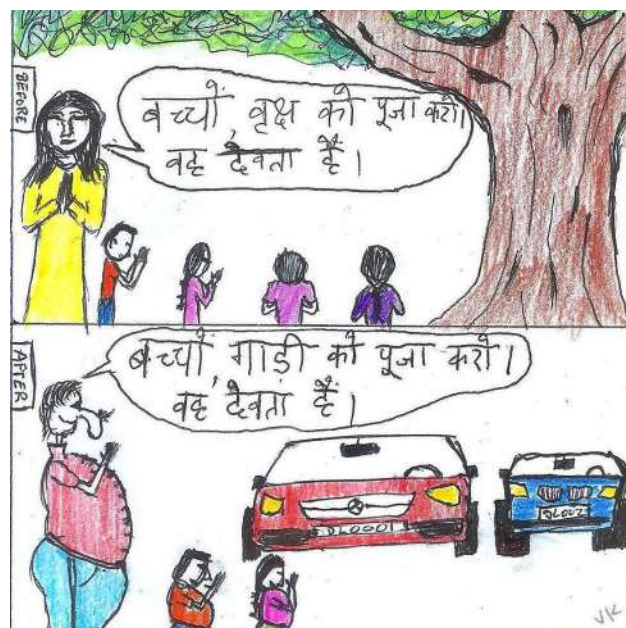 BEFORE
बच्चों, वृक्ष को पूजा करो।
वह देवता हैं।
AFTER
बच्चों, गाड़ी को पूजा करो।
वह देवता हैं।
DL0001
DL002
VK